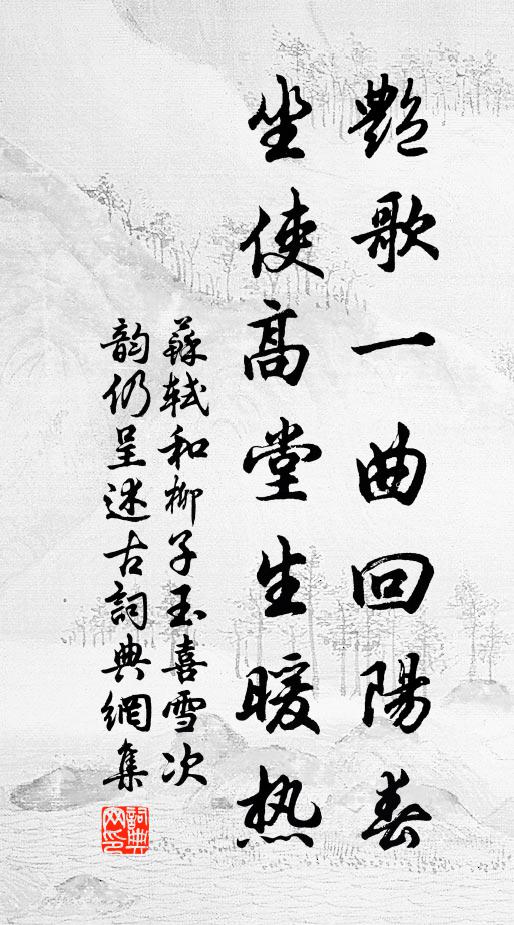 艷歌一曲回陽春
坐使高堂生暖热
蘇軾和柳子玉喜雪次
韵仍呈述古詞典網集
詞典
网印